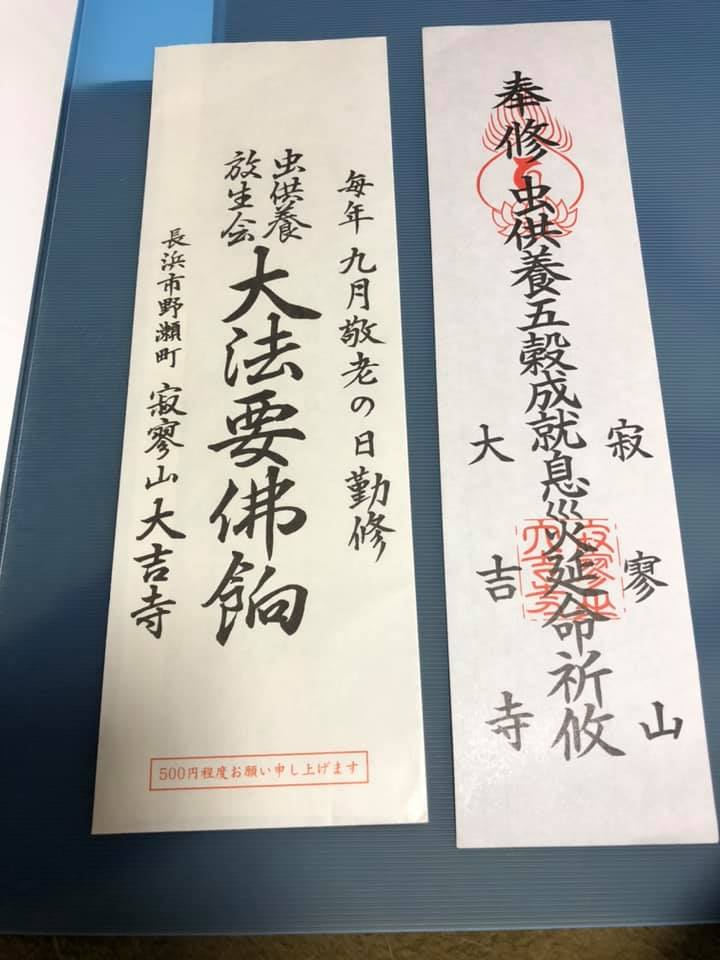 寂寥山
奉修 虫供養五穀成就息災延命祈攸
大吉寺
寂寥山
大吉寺
毎年 九月敬老の日勤修
虫供養
放生会
大法要佛餉
長浜市野瀬町 寂寥山大吉寺
500円程度お願い申し上げます